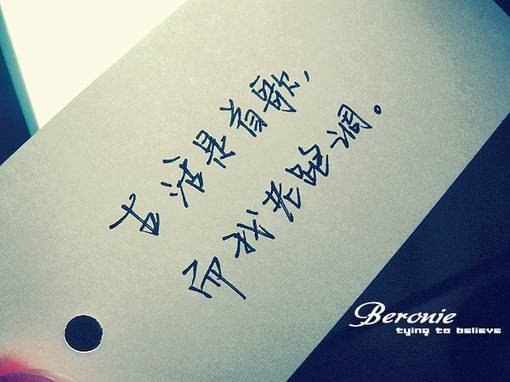 生活是首歌,
而我老跑调。
Beronie
tying to believe